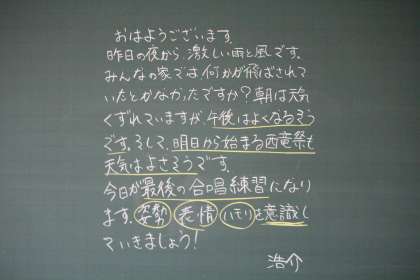 おはようございます。
昨日の夜から、激しい雨と風です。
みんなの家では何かが飛ばされて
いたとかなかったですか？朝は天気
くずれていますが、午後はよくなるそう
です。そして、明日から始まる西竜祭も
天気はよさそうです。
今日が最後の合唱練習になり
ます。姿勢 表情 ハモリを意識し
ていきましょう！
浩介